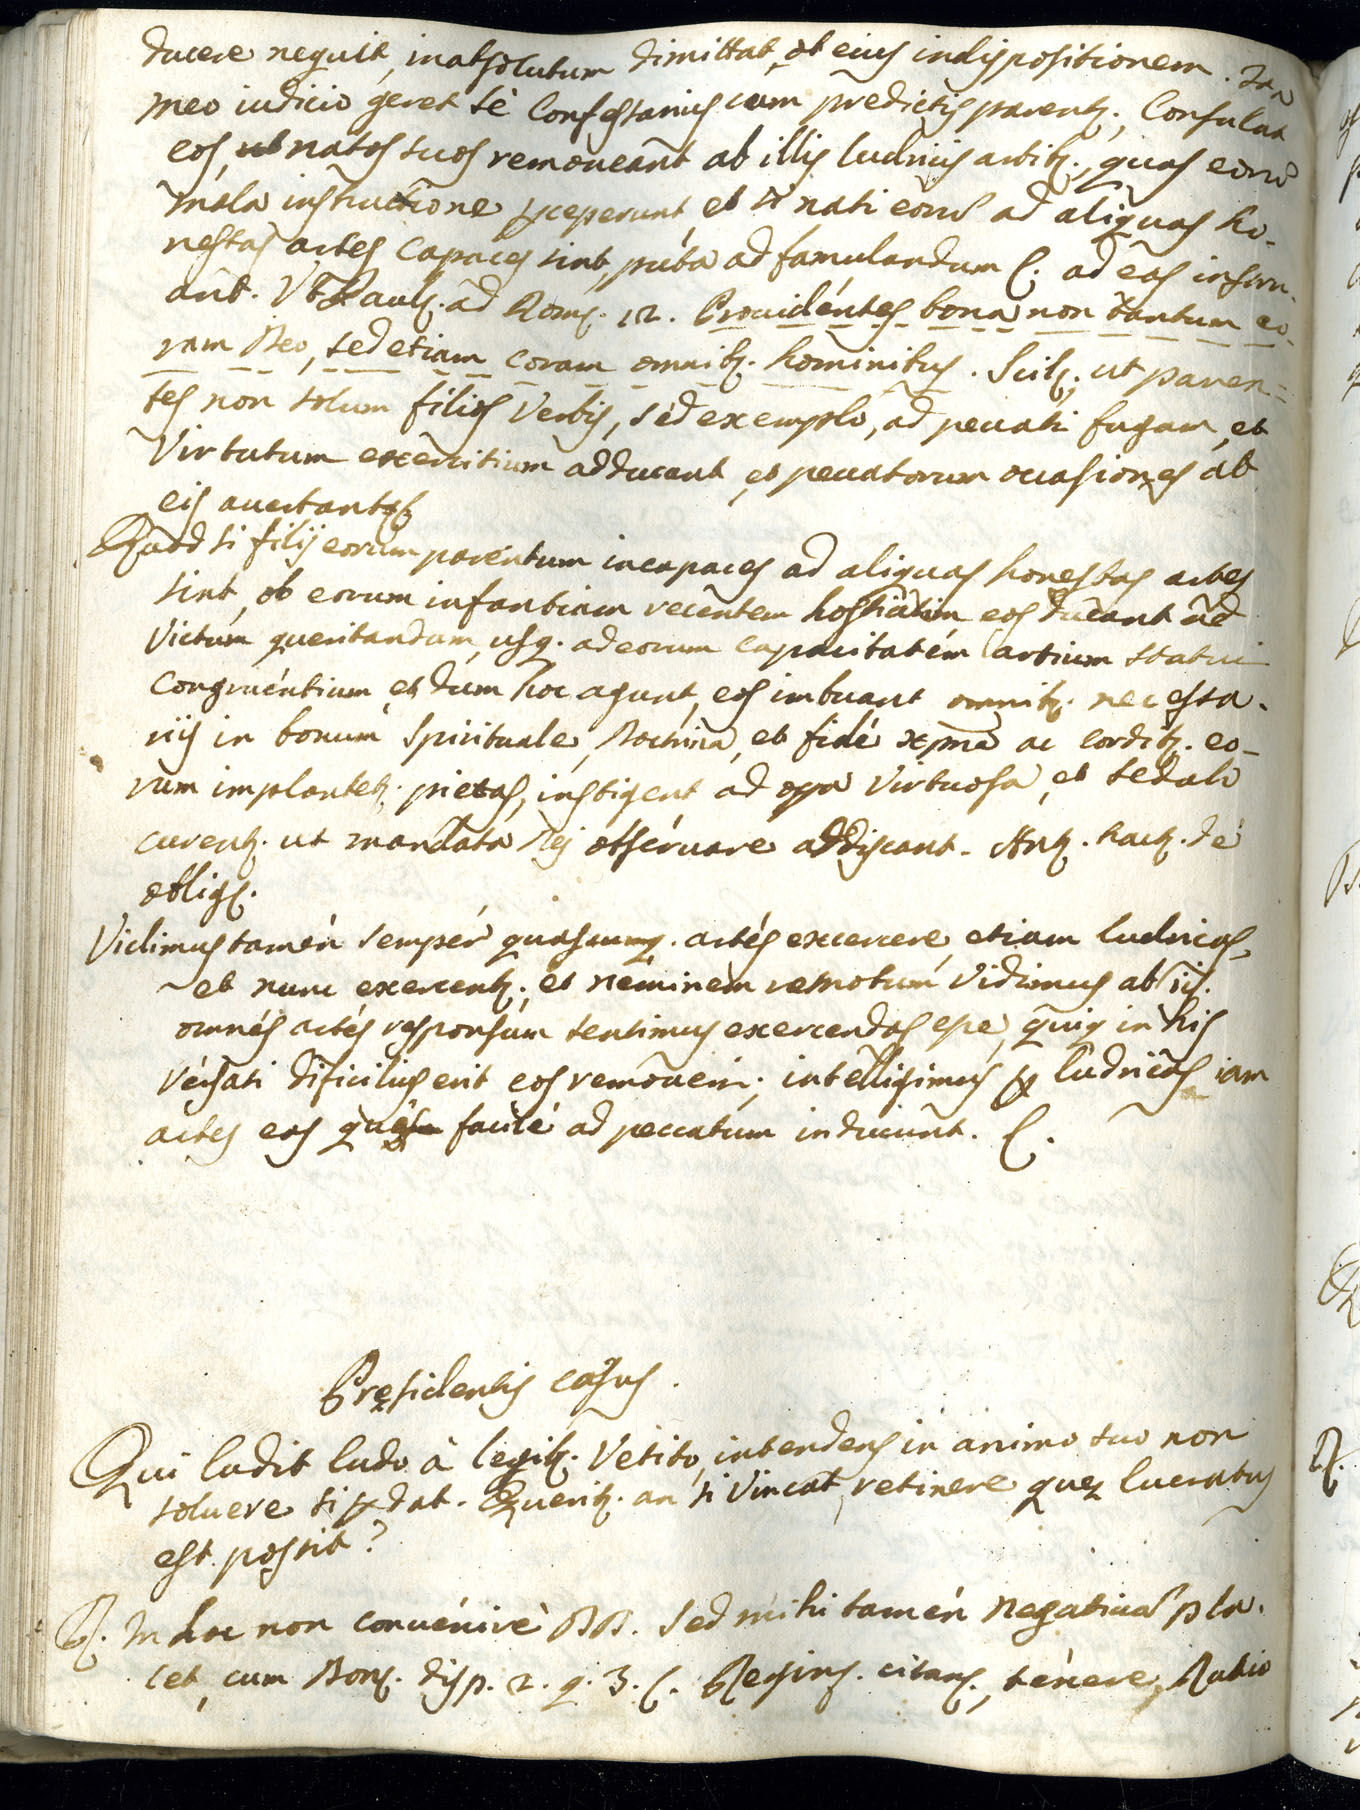 ducere nequit, inabsolutum dimittat, ob eius indispositionem. Ita
meo iudicio geret se Confessarius cum predictis parentq., Consulat
eos, ut natos suos remoueant ab illis ludricis artibq., quas eorũ
mala instructione acceperunt, et si nati eorũ ad aliquas ho-
nestas artes capaces sint, puta ad famulandum &. ad eas instru-
ant. Vt Paulq. ad Romq. 12. Prouidentes bona non tantum co-
ram Deo, sed etiam coram omnibq. hominibus. Scilq. ut paren-
tes non solum filios verbis, sed exemplo, ad peccati fugam, et
Virtutum exercitium adducant, et peccatorum occasiones ab
eis auertantq
Quod si filij eorum parentum incapaces ad aliquas honestas artes
sint, ob eorum infantiam recentem hostiatim eos ducant ad
Victum queritandum, usq. ad eorum capacitatem artium statui
congruentium, et dum hoc agunt, eos imbuant omnibq. necessa-
rijs in bonum spirituale, Doctrina, et fide xpma ac cordibq. eo-
rum implantetq. pietas, instigent ad opa Virtuosa, et sedulo
curentq. ut mandata Dei obseruare addiscant. Antq. hacq. de
obligq.
Vidimus tamen semper quascumq. artes exercere, etiam ludricas,
et nunc exercentq., et neminem remotum vidimus ab iis.
omnes artes responsum sentimus exercendas esse, quia in his
Versati dificilius erit eos remoueri; intelligimus p ludricas iam
artes eas que facile ad peccatum inducunt. &.
Presidentis casus.
Qui ludit ludo à legibq. Vetito, intendens in animo suo non
soluere si pdat. Queritq. an si Vincat, retinere que lucratus
est possit?
R. In hoc non conuenire DD. Sed mihi tamen negatiua pla-
cet, cum Bonq. disp. 2. q. 3. &. Reginq. citanq., tenere, Ratio